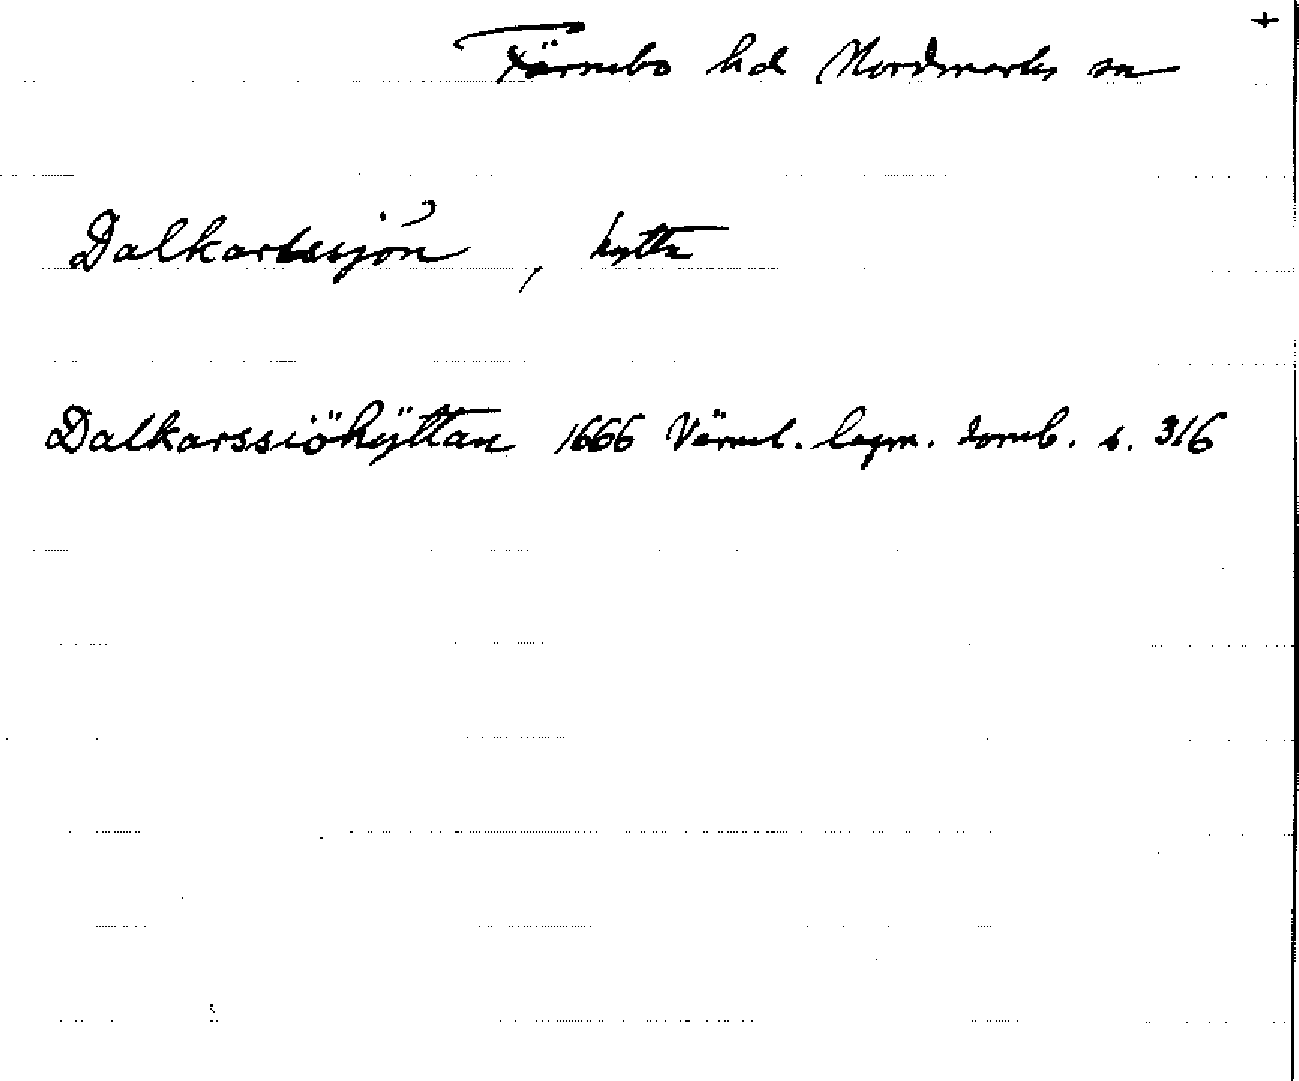 +
Färnebo hd Nordmarks sn
Dalkarlssjön, hytta
Dalkarssiöhÿttan 1666 Värml. lagm. domb. s. 316